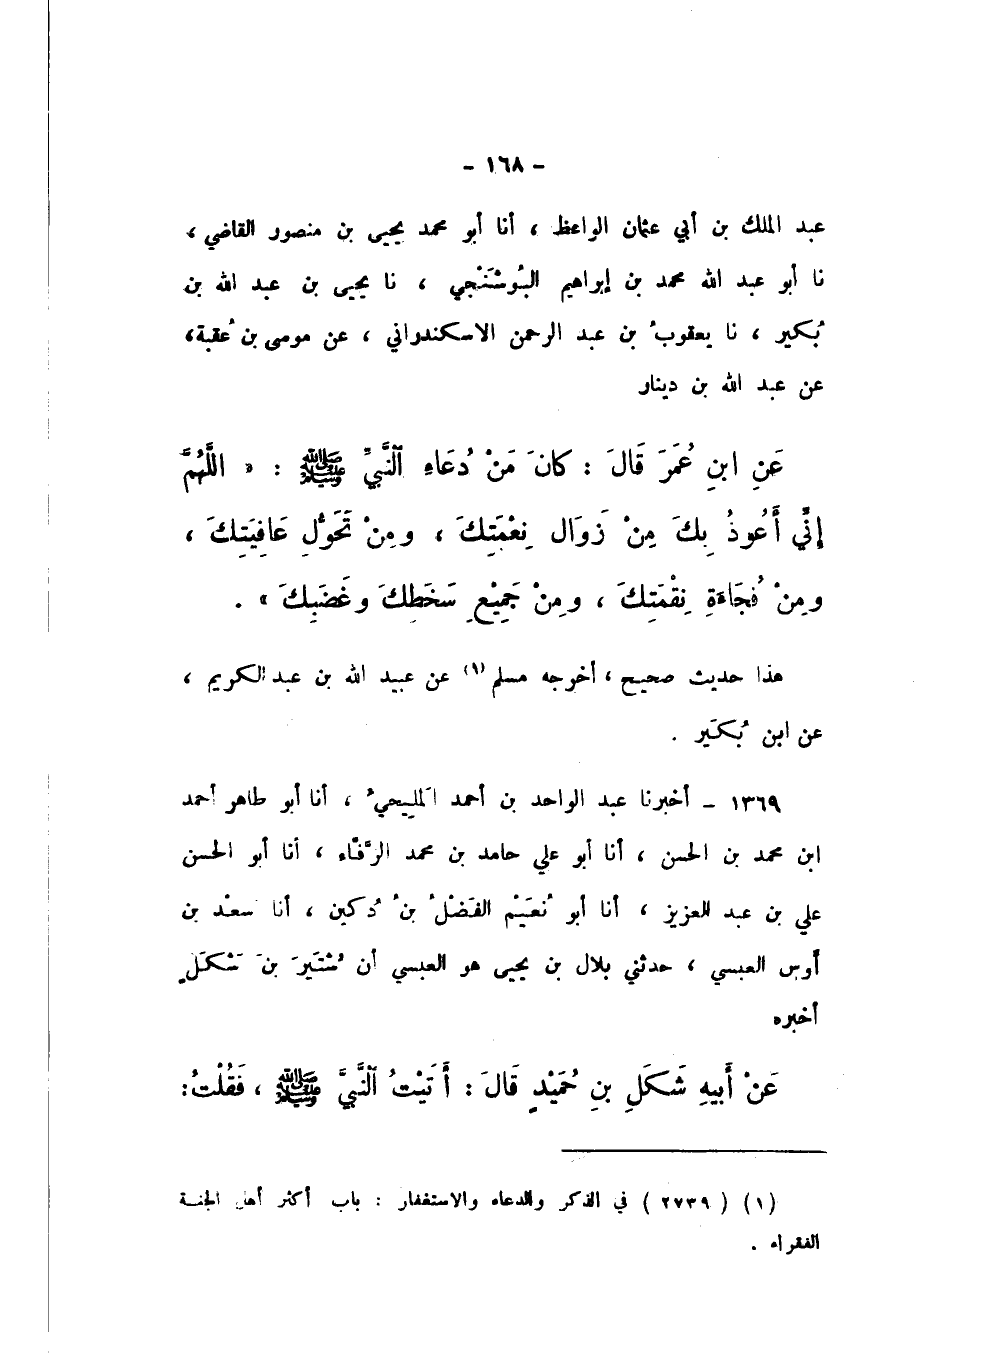 - ١٦٨ -
عبد الملك بن أبي عثمان الواعظ ، أنا أبو محمد يحيى بن منصور القاضي ،
نا أبو عبد الله محمد بن إبراهيم البُوشَنْجي ، نا يحيى بن عبد الله بن
بُكير ، نا يعقوبُ بن عبد الرحمن الاسكندراني ، عن موسى بن عُقبة،
عن عبد الله بن دينار
عَنِ ابنِ عُمَرَ قَالَ : كانَ مَنْ دُعَاءِ ٱلنَّبيِّ ﷺ : « اللَّهُمَّ
إنِّي أَعُوذُ بِكَ مِنْ زَوَال نِعْمَتِكَ ، ومِنْ تَحَوُّلِ عَافِيَتِكَ ،
ومِنْ فُجَاءَةِ نِقْمَتِكَ ، ومِنْ جَمِيْعِ سَخَطِكَ وغَضَبِكَ » .
هذا حديث صحيح ، أخرجه مسلم (١) عن عبيد الله بن عبد الكريم ،
عن ابن بُكَير .
١٣٦٩ – أخبرنا عبد الواحد بن أحمد المَليحيُ ، أنا أبو طاهر أحمد
ابن محمد بن الحسن ، أنا أبو علي حامد بن محمد الرَّفّاء ، أنا أبو الحسن
علي بن عبد العزيز ، أنا أبو نُعَيْم الفَضْلُ بنُ دُكين ، أنا سعْد بن
أوس العبسي ، حدثني بلال بن يحيى هو العبسي أن شُتَيرَ بنَ شَكَلٍ
أخبره
عَنْ أَبيهِ شَكَلِ بنِ حُمَيْدٍ قَالَ : أَتَيْتُ ٱلنَّبيَّ ﷺ ، فَقُلْتُ:
(١) ( ٢٧٣٩ ) في الذكر والدعاء والاستغفار : باب أكثر أهل الجنة
الفقراء .